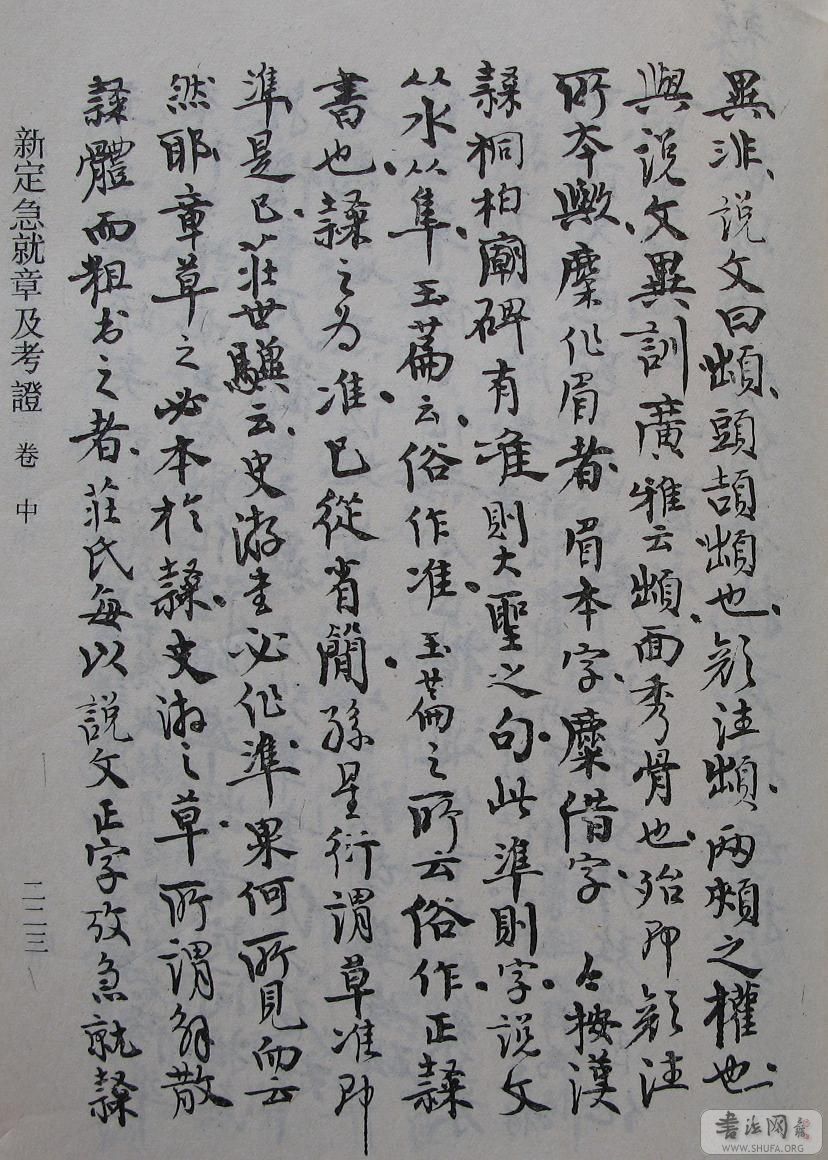 異非、說文曰䪼、頭頡䪼也、顏注䪼、兩頰之權也、
與說文異訓廣雅云䪼、面秀骨也、殆即顏注
所本歟、麋作眉者、眉本字、麋借字、今按漢
隸桐柏廟碑有准則大聖之句、此準則字、說文
从水从隼、玉篇云、俗作准、玉篇之所云俗作、正隸
書也、隸之為准、已從省簡、孫星衍謂草准即
準是已、莊世驥云、史游書必作準、果何所見而云
然耶、章草之必本於隸、史游之草、所謂解散
隸體而粗书之者、莊氏每以說文正字攷急就隸
新定急就章及考證 卷中
二二三
書法网
WWW.SHUFA.ORG